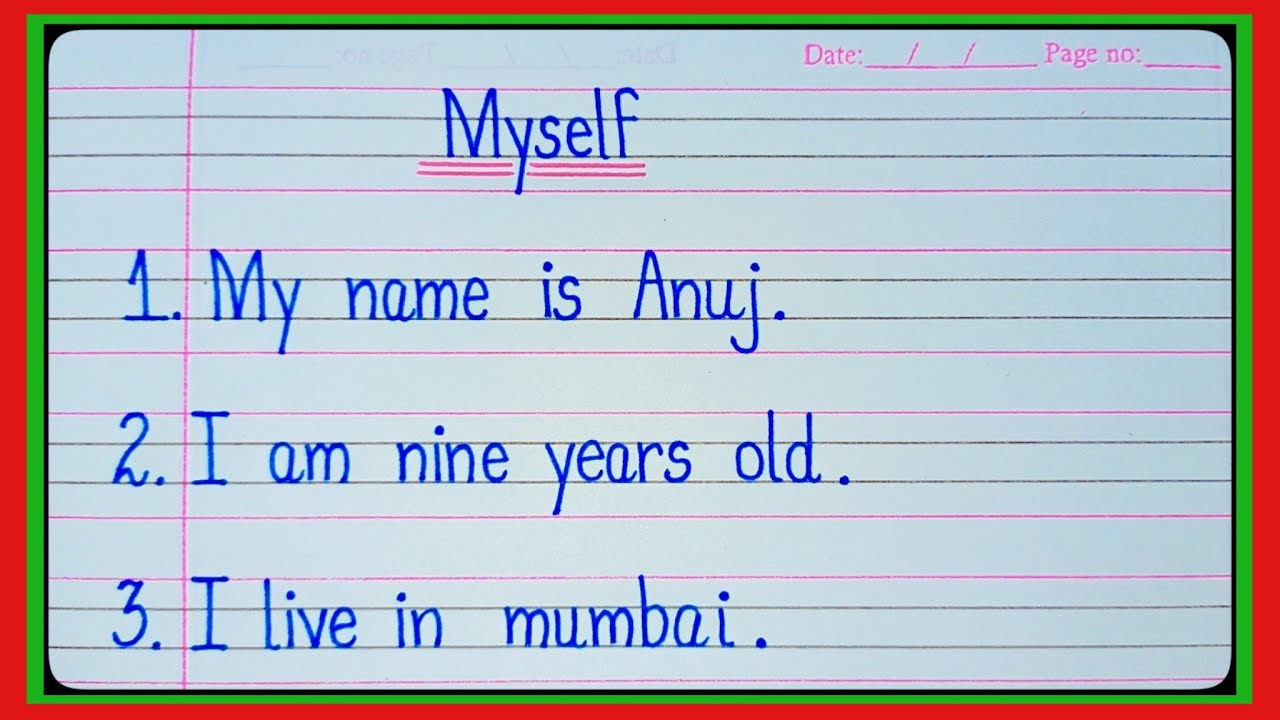 Date: / / Page no:
Myself
1. My name is Anuj.
2. I am nine years old.
3. I live in mumbai.